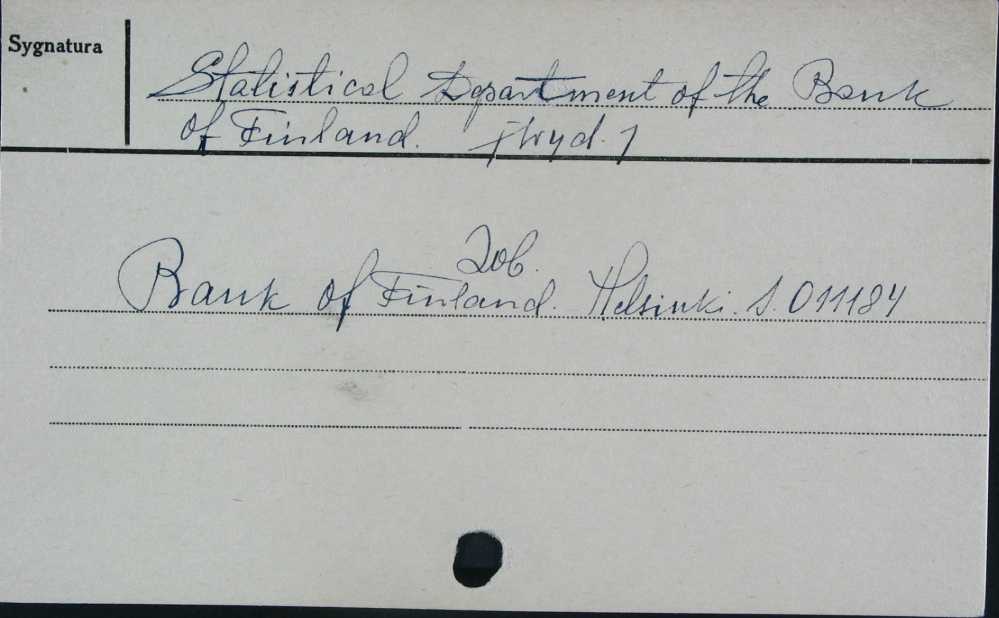 Sygnatura
Statistical Department of the Bank
of Finland. [wyd.]
Zob.
Bank of Finland. Helsinki. S. 011184